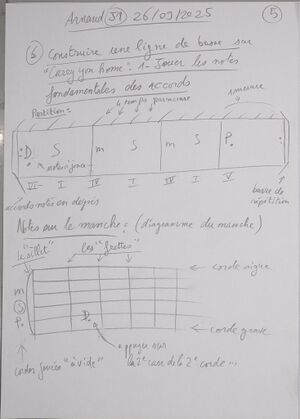 Arnaud S1 26/09/2025 5
6 Construire une ligne de basse sur
"Carey you home": 1 - Jouer les notes
fondamentales des accords
Partition: 4 temps par mesure 1 mesure
D. S m S m S P.
notes à jouer
VI- I IV I IV I V
accords notés en degrés barre de
répétition
Notes sur le manche: (diagramme du manche)
le "sillet" les "frettes"
corde aigue
m
S
P. D. corde grave
appuyer sur
cordes jouées "à vide" la 2e case de la 2e corde ...